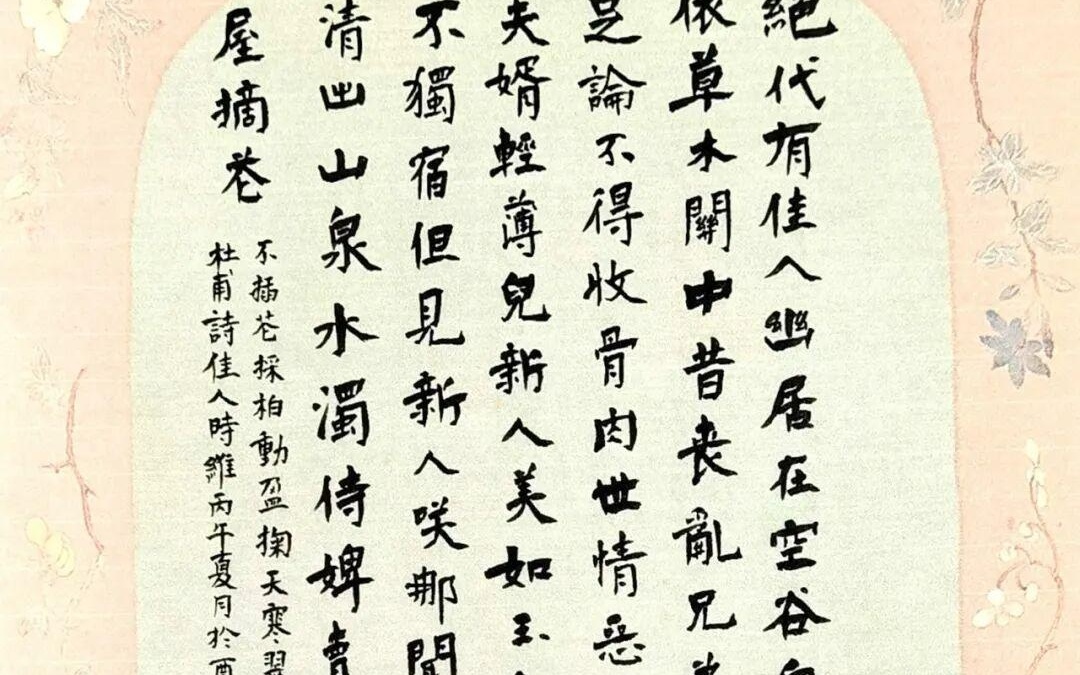 絕代有佳人幽居在空谷
依草木關中昔喪亂兄
足論不得收骨肉世情惡
夫婿輕薄兒新人美如玉
不獨宿但見新人咲那聞
清出山泉水濁侍婢賣
屋摘花
不插花採柏動盈掬天寒翠
杜甫詩佳人時維丙午夏月於